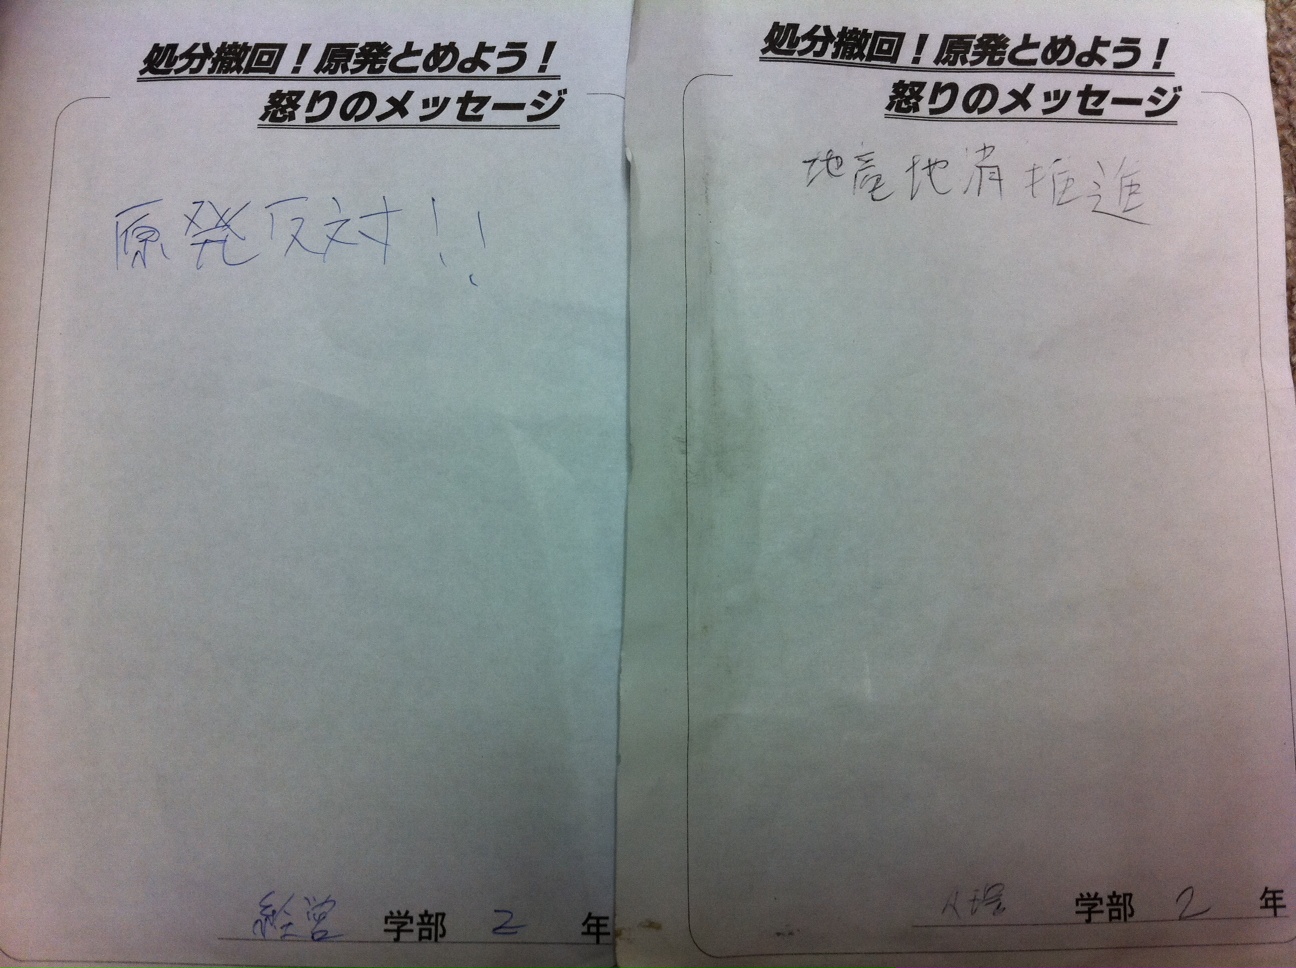 処分撤回!原発とめよう!
怒りのメッセージ
原発反対!!
経営 学部 2 年
処分撤回!原発とめよう!
怒りのメッセージ
地産地消推進
人環 学部 2 年